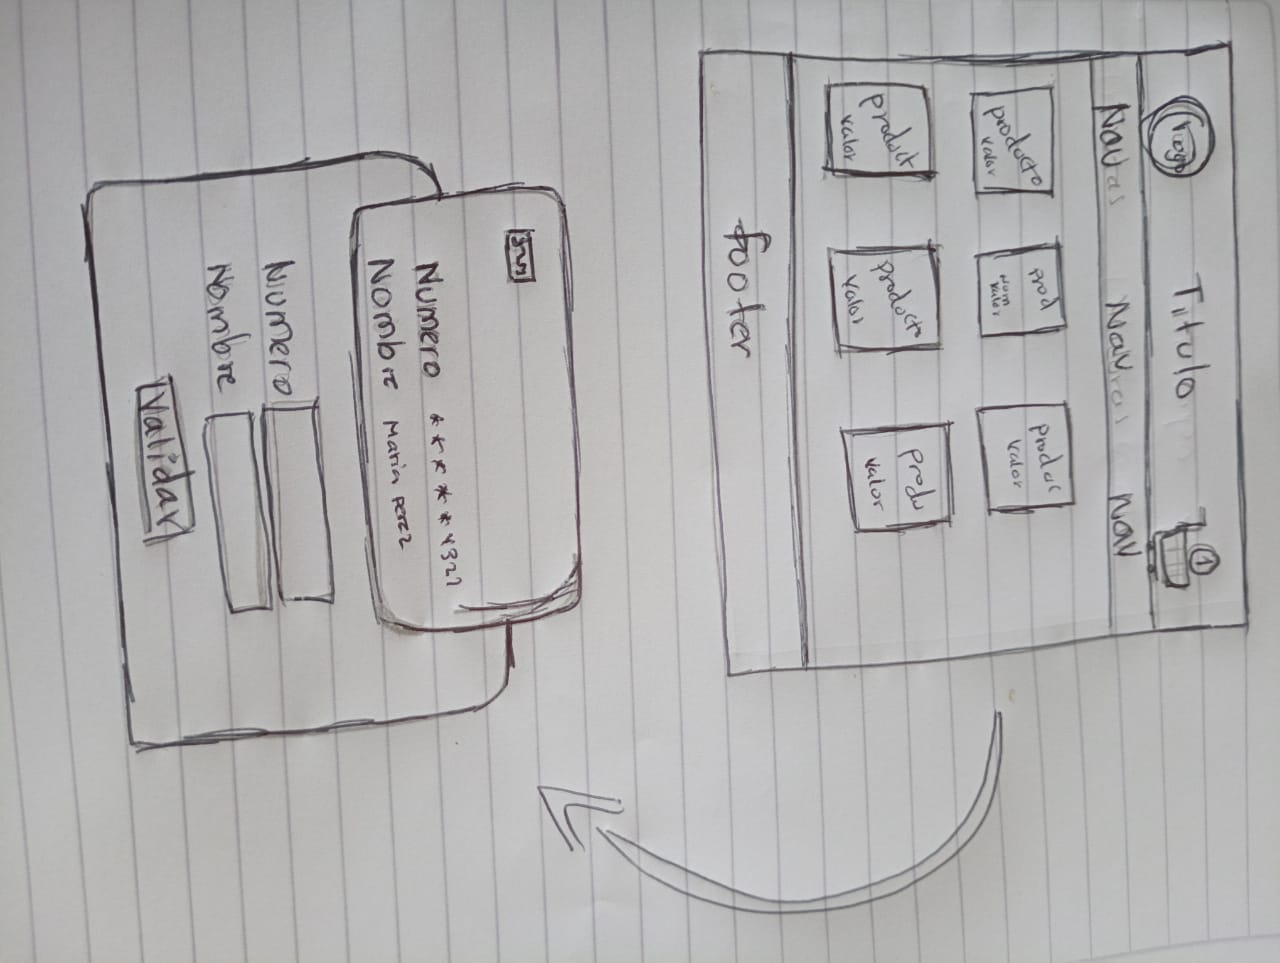 logo Titulo 1
Nav Nav Nav
producto
valor
prod
nom
valor
produc
valor
product
valor
producto
valor
produ
valor
footer
Numero *****4321
Nombre Maria Perez
Numero
Nombre
Validar